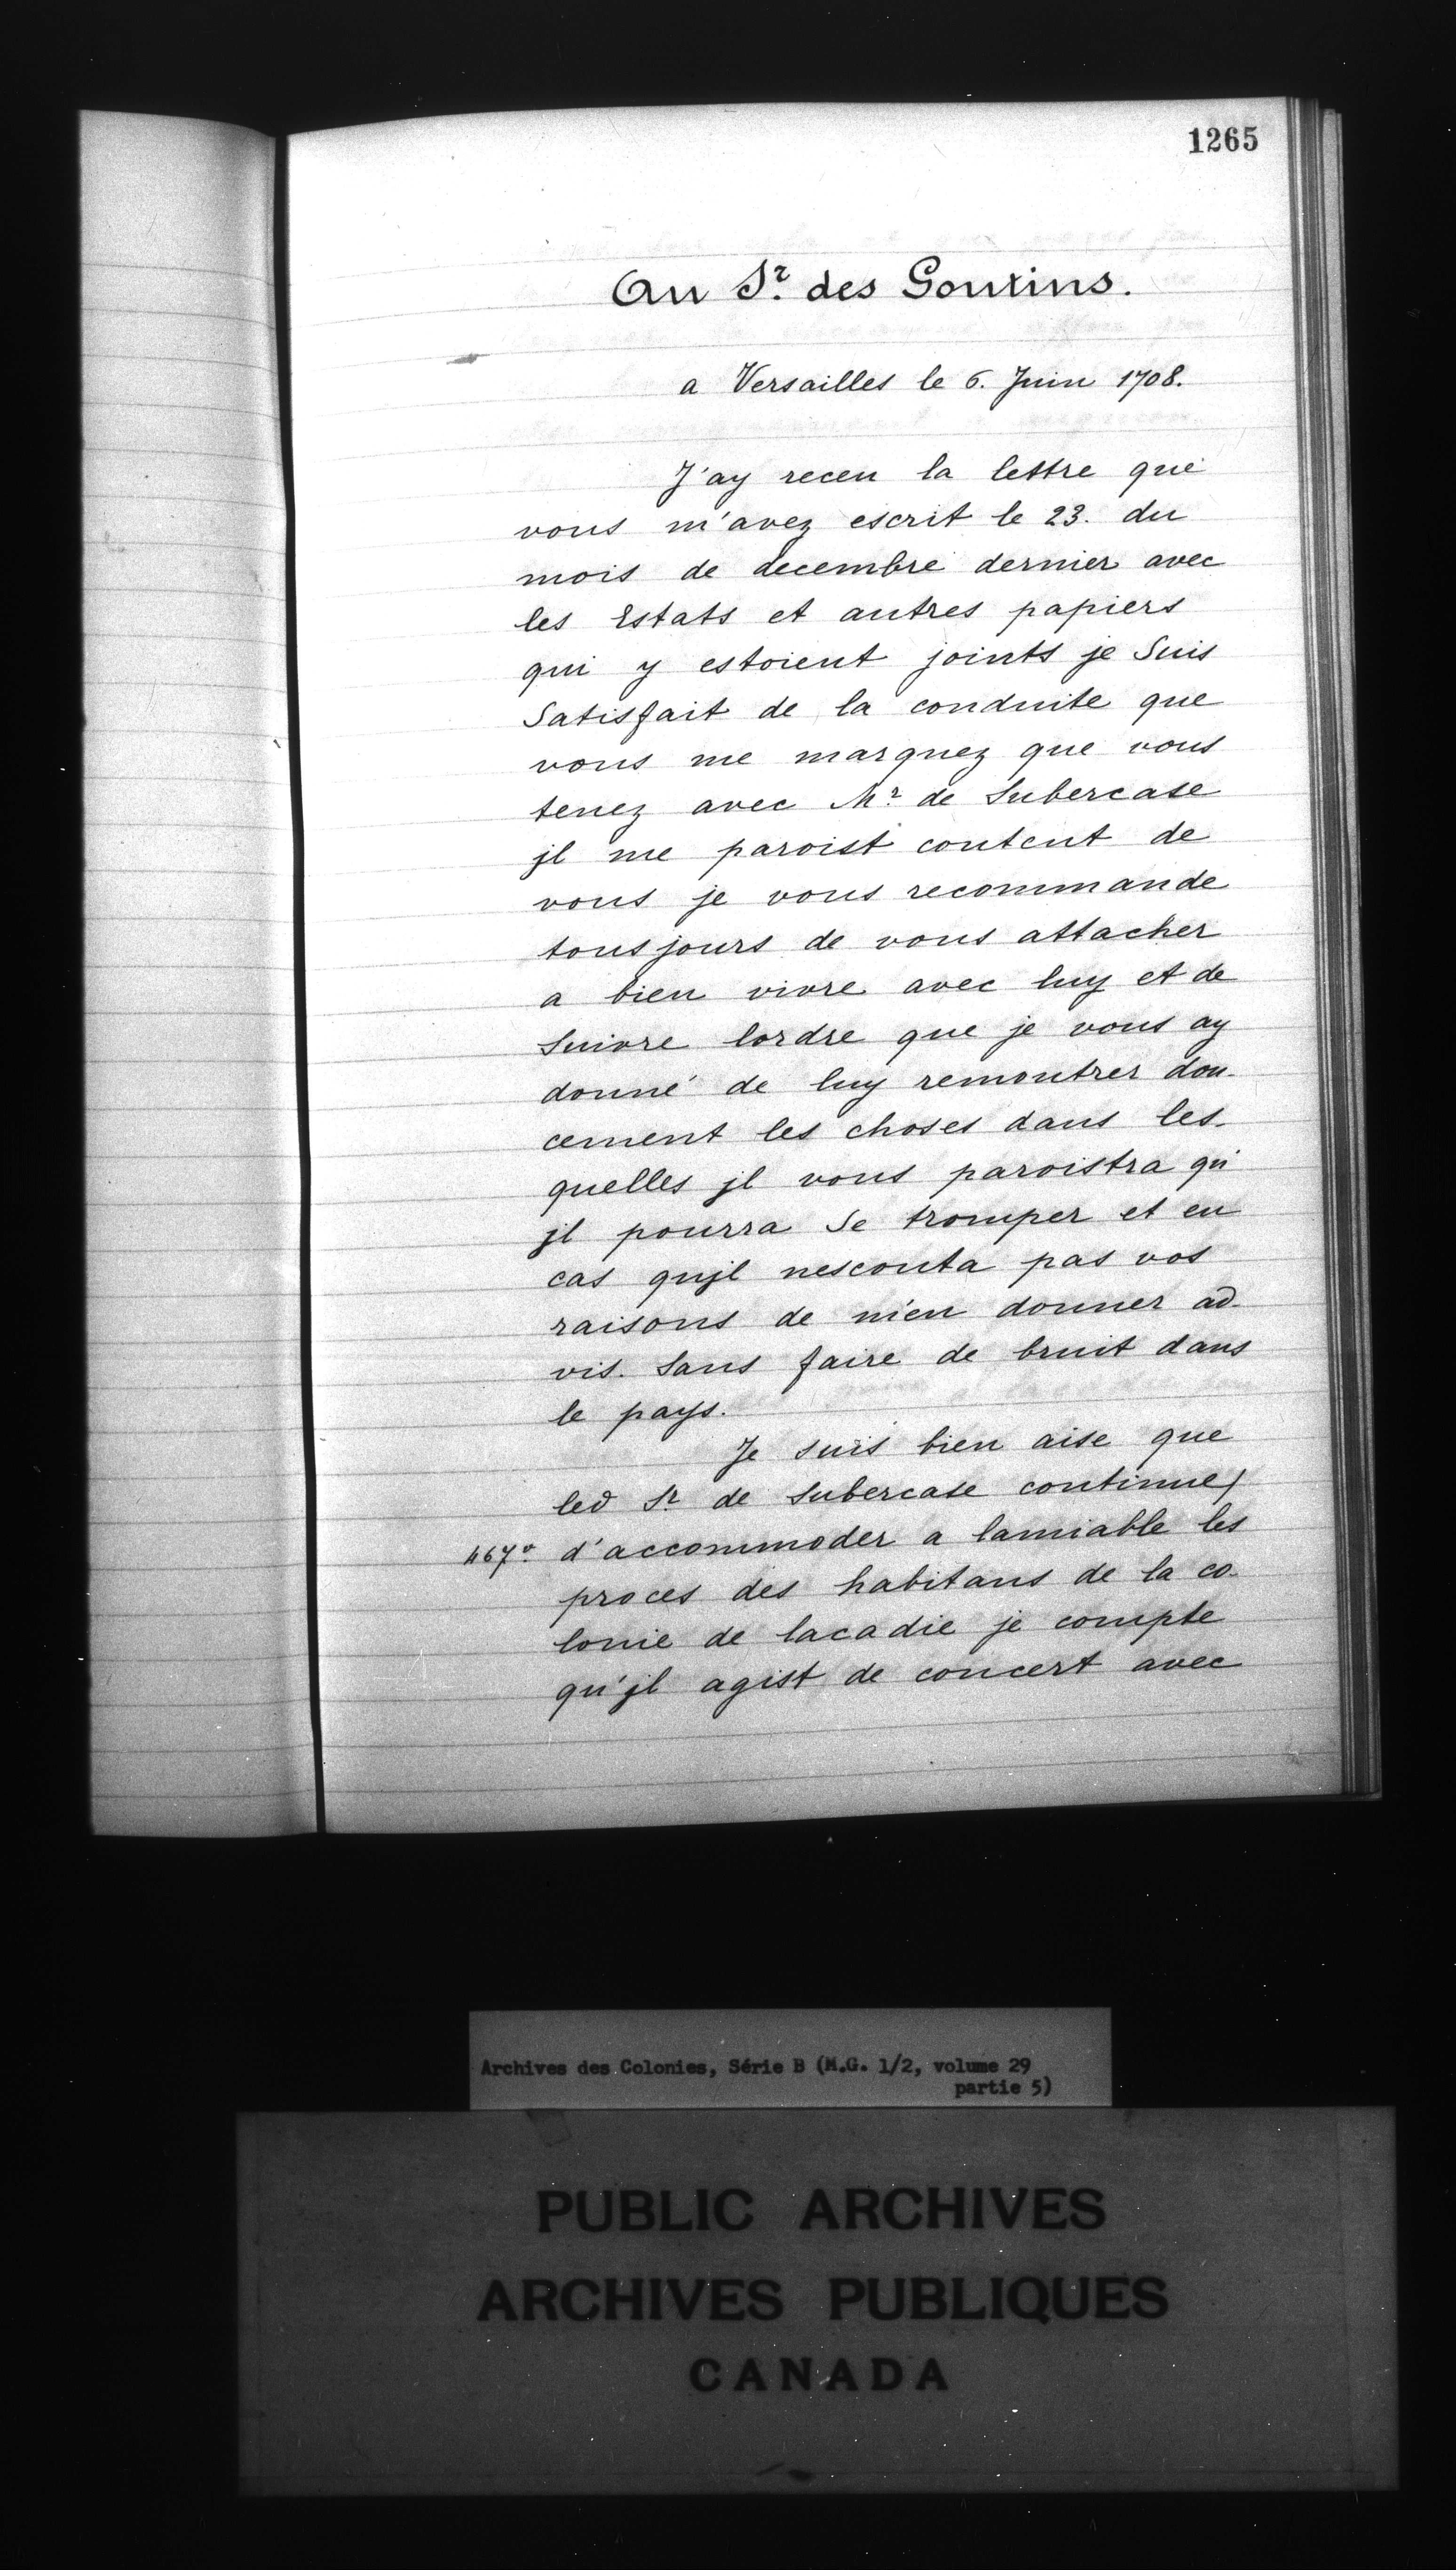 1265
Au Sr. des Goutins.
a Versailles le 6. Juin 1708.
J'ay receu la lettre que
vous m'avez escrit le 23. du
mois de decembre dernier avec
les Estats et autres papiers
qui y estoient joints je Suis
Satisfait de la conduite que
vous me marquez que vous
tenez avec Mr. de Subercase
jl me paroist content de
vous je vous recommande
tousjours de vous attacher
a bien vivre avec luy et de
Suivre lordre que je vous ay
donné de luy remontrer dou-
cement les choses dans les-
quelles jl vous paroistra qu'
jl pourra Se tromper et en
cas qujl nescouta pas vos
raisons de m'en donner ad-
vis. Sans faire de bruit dans
le pays.
Je suis bien aise que
led Sr de Subercase continue/
467vo d'accommoder a lamiable les
proces des habitans de la co-
lonie de lacadie je compte
qu'jl agist de concert avec
Archives des Colonies, Série B (M.G. 1/2, volume 29
partie 5)
PUBLIC ARCHIVES
ARCHIVES PUBLIQUES
CANADA